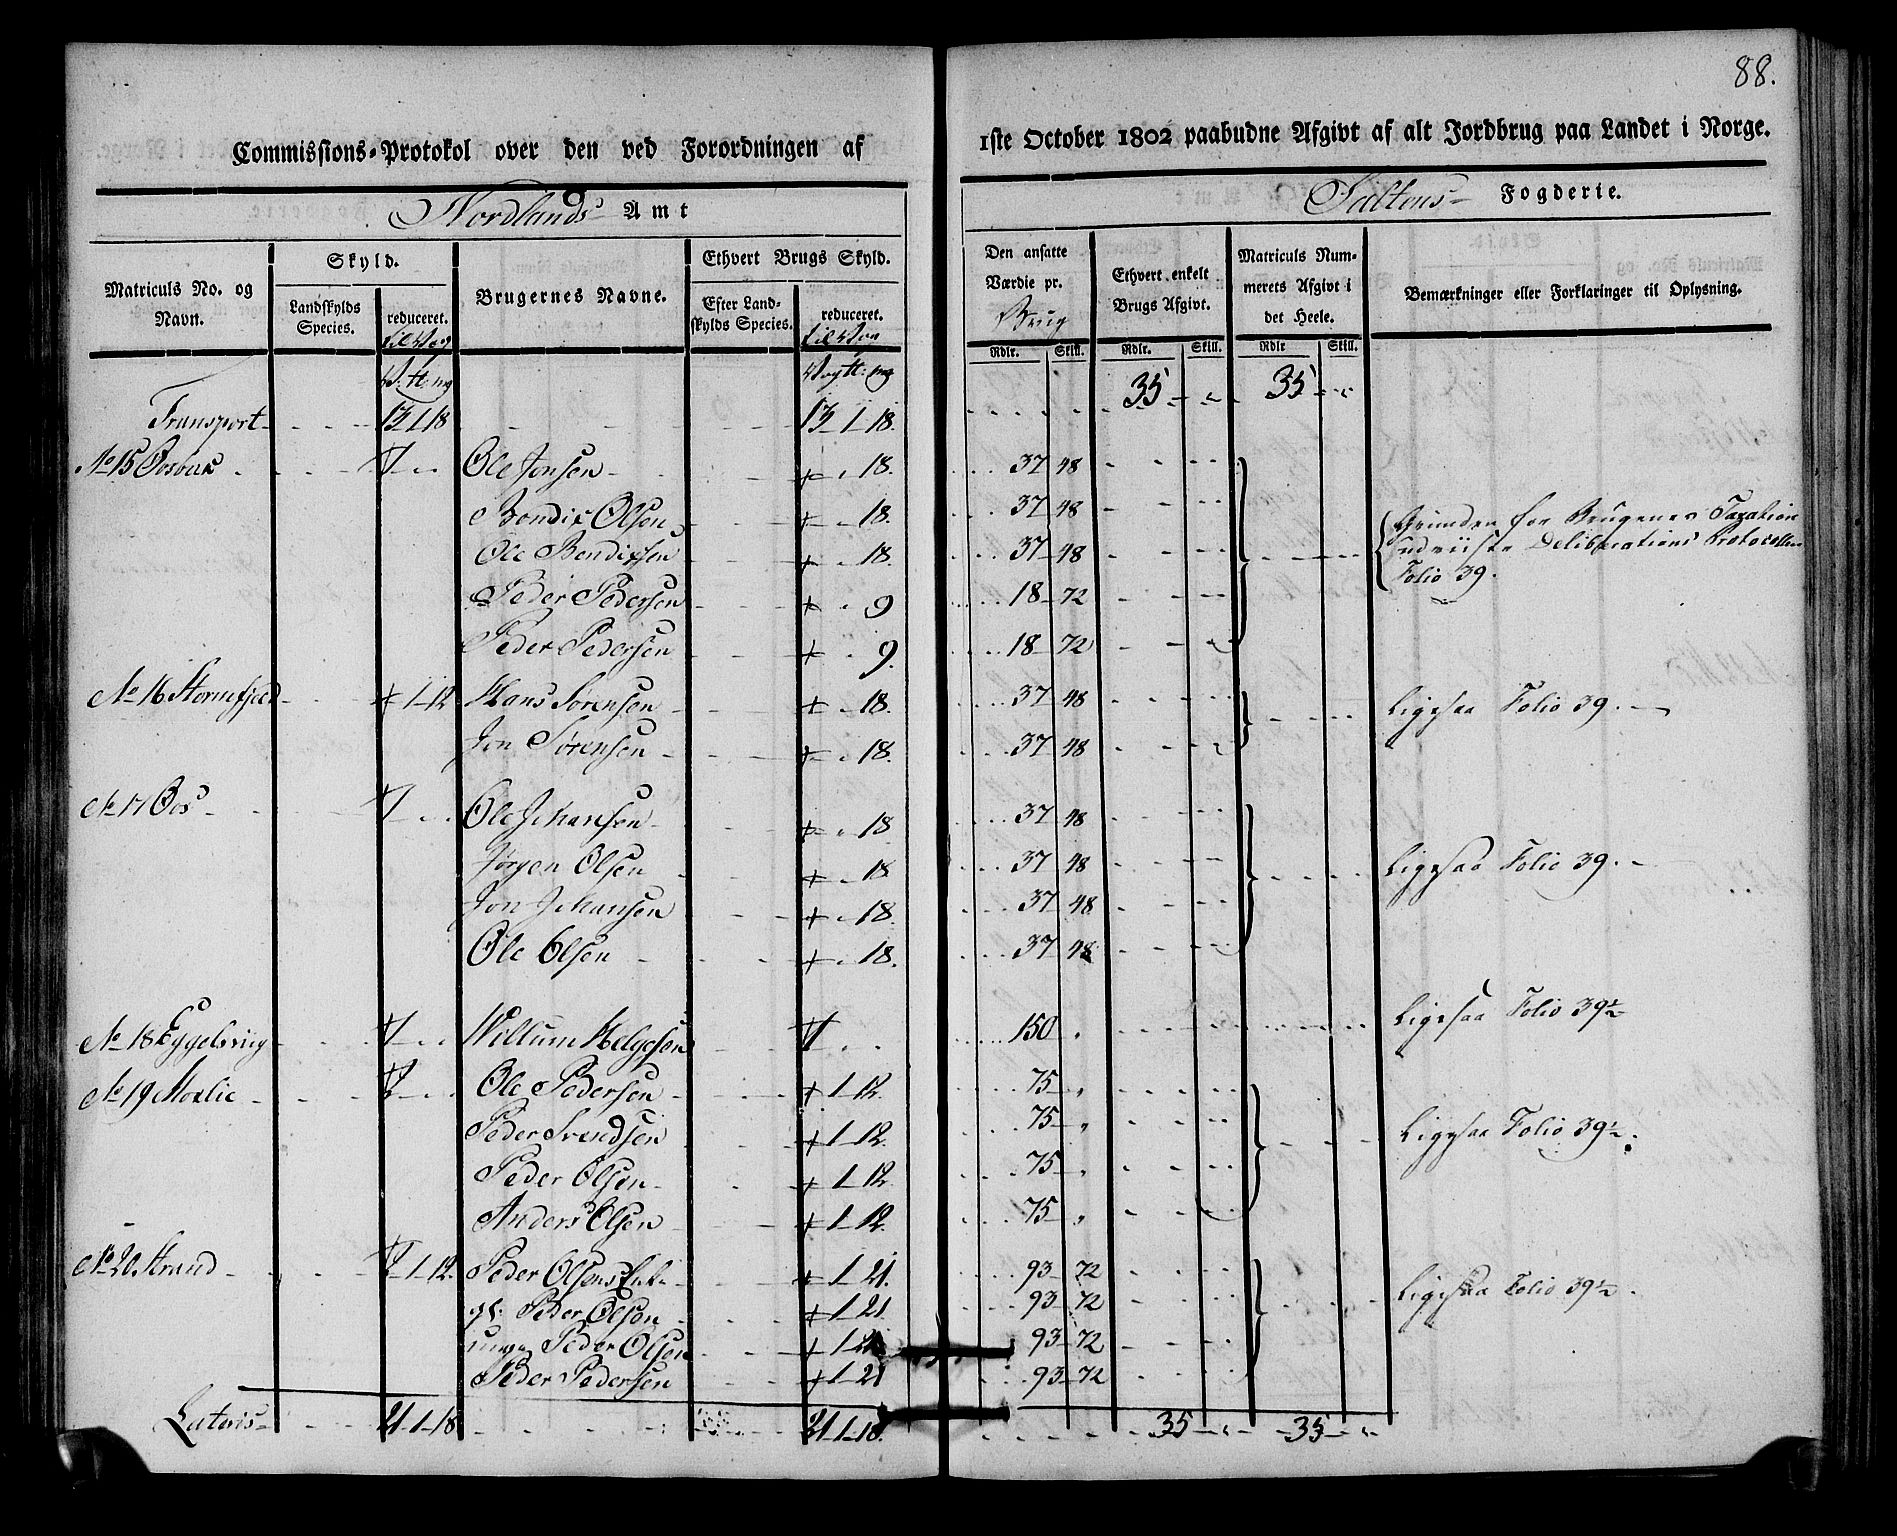 88.
Commissions-Protokol over den ved Forordningen af 1ste October 1802 paabudne Afgivt af alt Jordbrug paa Landet i Norge.
Nordlands Amt Saltens Fogderie.
Matriculs No. og Navn. Skyld. Landskylds Species. reduceret. til Vog Brugernes Navne. Ethvert Brugs Skyld. Efter Landskylds Species. reduceret. til Vog Den ansatte Værdie pr. Brug Ethvert enkelt Brugs Afgivt. Matriculs Nummerets Afgivt i det Heele. Bemærkninger eller Forklaringer til Oplysning.
Rdlr. Skill. Rdlr. Skill. Rdlr Skill.
Transport 13-1-18 13-1-18. 35 35
No 15 Ole Jonsen 18. 37 48
Bendix Olsen 18. 37 48
Ole Bendixsen 18. 37 48
Peder Pedersen 9 18 72
Peder Pedersen 9. 18 72
Grunden for Brugenes Taxation
udviiste Deliberations Protocollen
Folio 39.
No 16 Stormfjeld 1-12 Hans Sørensen 18. 37 48 Ligesaa Folio 39.
Jon Sørensen 18. 37 48
No 17 Oos Ole Johansen 18 37 48
Jørgen Olsen 18 37 48 Ligesaa Folio 39.
Jon Johansen 18. 37 48
Ole Olsen 18. 37 48
No 18 Willum Helgesen 150 Ligesaa Folio 39½
No 19 Ole Pedersen 1-12 75
Peder Svendsen 1-12 75 Ligesaa Folio 39½.
Peder Olsen 1-12 75
Anders Olsen 1-12 75
No 20 Strand 1-12. Peder Olsens Enke 1-21. 93 72 Ligesaa Folio 39½.
gl: Peder Olsen 1-21 93 72
unge Peder Olsen 1-21 93 72
Peder Pedersen 1-21 93 72
Lateris 21-1-18 21-1-18. 35 35